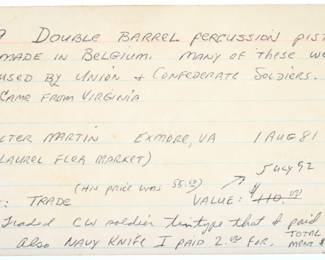 DOUBLE BARREL PERCUSSION PIST
MADE IN BELGIUM. MANY OF THESE WE
USED BY UNION & CONFEDERATE SOLDIERS.
CAME FROM VIRGINIA
LTER MARTIN EXMORE, VA 1 AUG 81
LAUREL FLEA MARKET)
5 JULY 92
(HIS PRICE WAS 55.00)
: TRADE VALUE: $110.00
Traded CW soldier tintype that I paid
TOTAL
Also NAVY KNIFE I PAID 2.00 FOR.